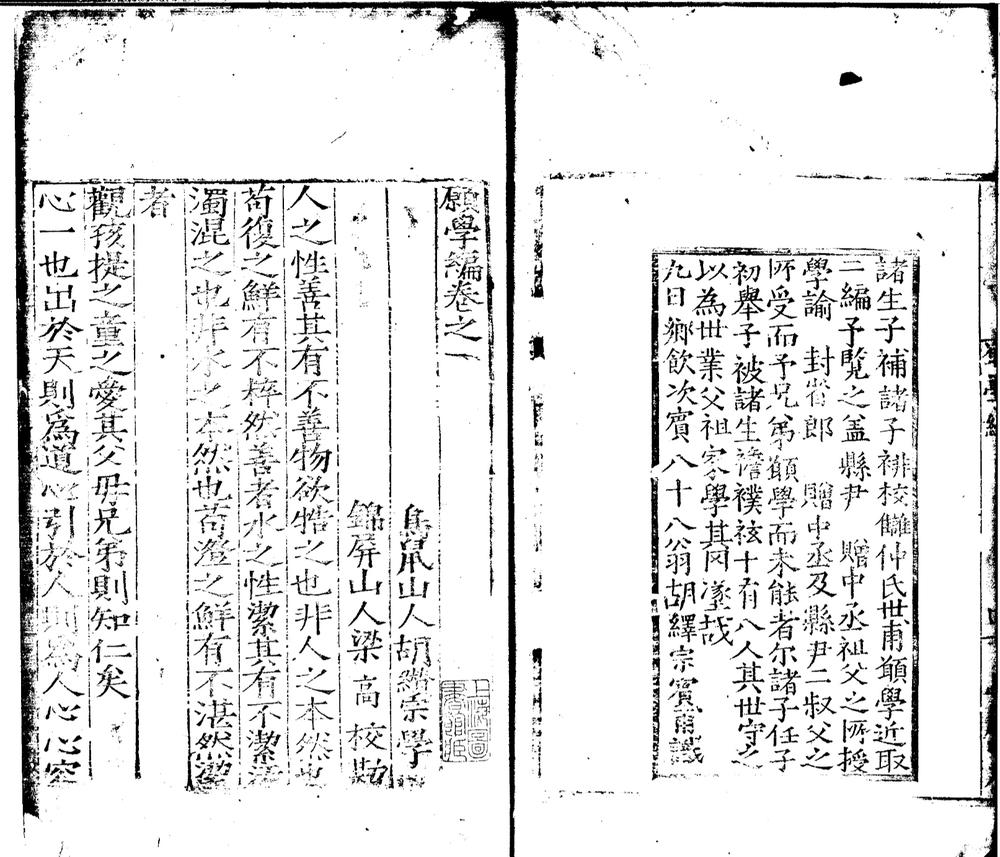 諸生子補諸子裶校讎仲氏世甫願學近取
二編予覧之盖縣尹 贈中丞祖父之所授
學諭 封省郎 贈中丞及縣尹二叔父之
所受而予兄弟願學而未能者尔諸子任子
初舉子被諸生襜襆袨十有八人其世守之
以為世業父祖家學其罔墜哉
九日鄉飲次賓八十八翁胡繹宗賓甫識
願學編卷之一
鳥䑕山人胡纘宗學
錦屏山人梁高校勘
人之性善其有不善物欲牿之也非人之本然也
苟復之鮮有不粹然善者水之性潔其有不潔
濁混之也非水之本然也苟澄之鮮有不湛然潔
者
觀孩提之童之愛其父母兄弟則知仁矣
心一也出於天則為道心引於人則為人心心